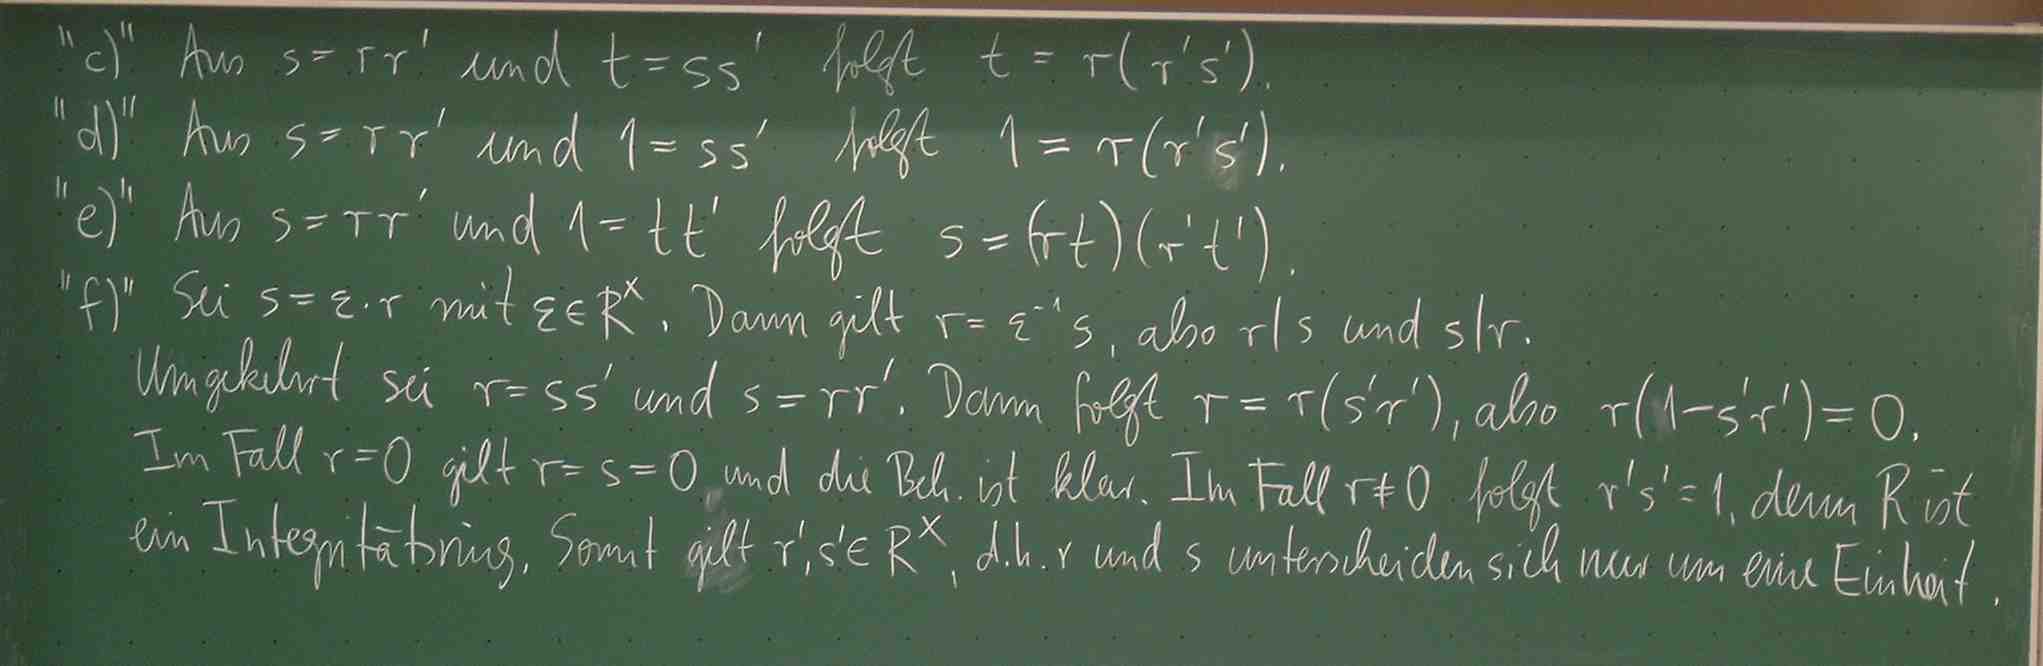 "c)" Aus s = rr' und t = ss' folgt t = r(r's').
"d)" Aus s = rr' und 1 = ss' folgt 1 = r(r's').
"e)" Aus s = rr' und 1 = tt' folgt s = (rt)(r't').
"f)" Sei s = ε·r mit ε ∈ R^×. Dann gilt r = ε⁻¹s, also r|s und s|r.
Umgekehrt sei r = ss' und s = rr'. Dann folgt r = r(s'r'), also r(1-s'r') = 0.
Im Fall r = 0 gilt r = s = 0, und die Beh. ist klar. Im Fall r ≠ 0 folgt r's' = 1, denn R ist
ein Integritätsring. Somit gilt r', s' ∈ R^×, d.h. r und s unterscheiden sich nur um eine Einheit.